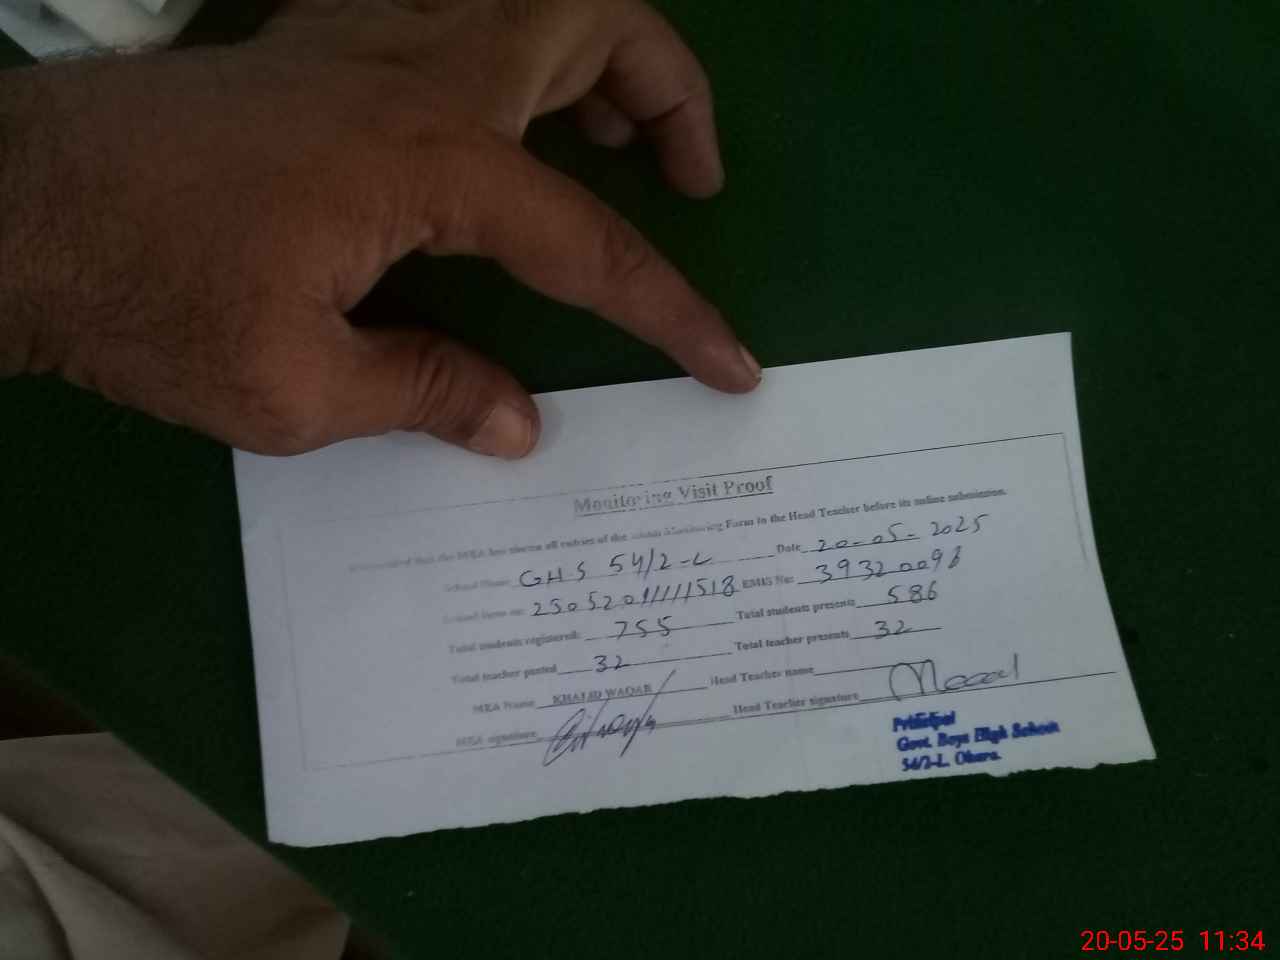 Monitoring Visit Proof
that the MEA has shown all entries of the Monitoring Form to the Head Teacher before its online submission.
School Name GHS 54/2-L Date 20-05-2025
250520111111518 EMIS No: 39320096
Total students registered: 755 Total students presents 586
Total teacher posted 32 Total teacher presents 32
MEA Name KHALID WAQAR Head Teacher name
MEA signature Head Teacher signature
Principal
Govt. Boys High School
54/2-L. Okara.
20-05-25 11:34